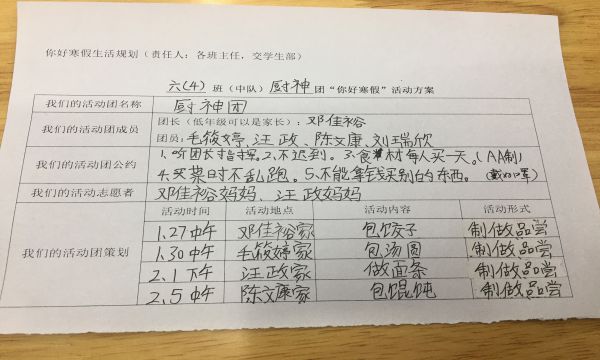 你好寒假生活规划（责任人：各班主任，交学生部）
六(4)班（中队）厨神团“你好寒假”活动方案
我们的活动团名称 厨神团
我们的活动团成员 团长（低年级可以是家长）：邓佳裕
团员：毛筱婷、汪政、陈文康、刘瑞欣
我们的活动团公约 1.听团长指挥。2.不迟到。3.食材每人买一天。(AA制)
4.买菜时不乱跑。5.不能拿钱买别的东西。(戴口罩)
我们的活动志愿者 邓佳裕妈妈、汪政妈妈
我们的活动团策划 活动时间 活动地点 活动内容 活动形式
1.27中午 邓佳裕家 包饺子 制做品尝
1.30中午 毛筱婷家 包汤圆 制做品尝
2.1下午 汪政家 做面条 制做品尝
2.5中午 陈文康家 包馄饨 制做品尝